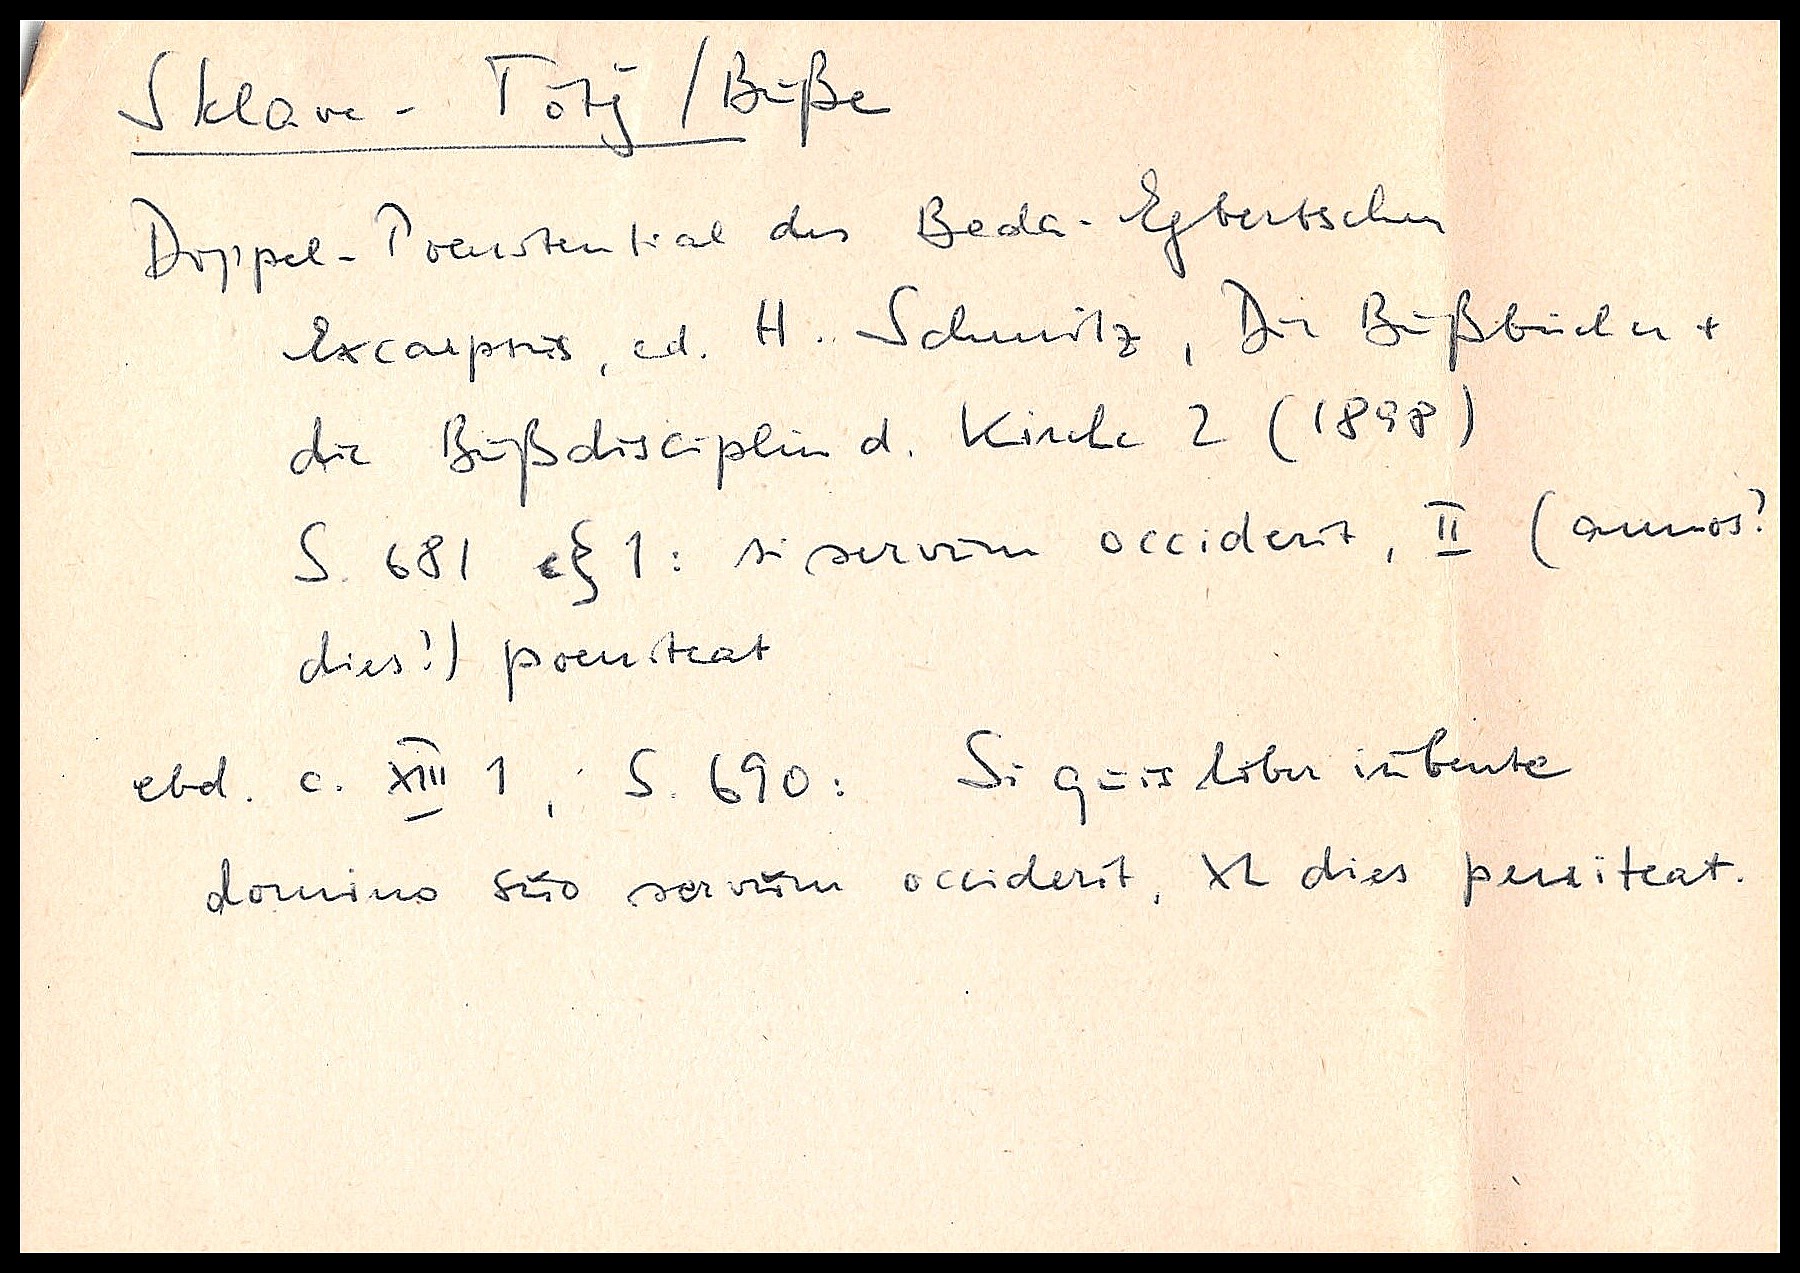 Sklave - Tötg / Buße
Doppel-Poenitential des Beda-Egbertschen
Excarpsus, ed. H. Schmitz, Die Bußbücher +
die Bußdisciplin d. Kirche 2 (1898)
S. 681 § 1: si servum occiderit, II (annos?
dies?) poeniteat
ebd. c. XIII 1, S. 690: Si quis liber iubente
domino suo servum occiderit, XL dies peniteat.